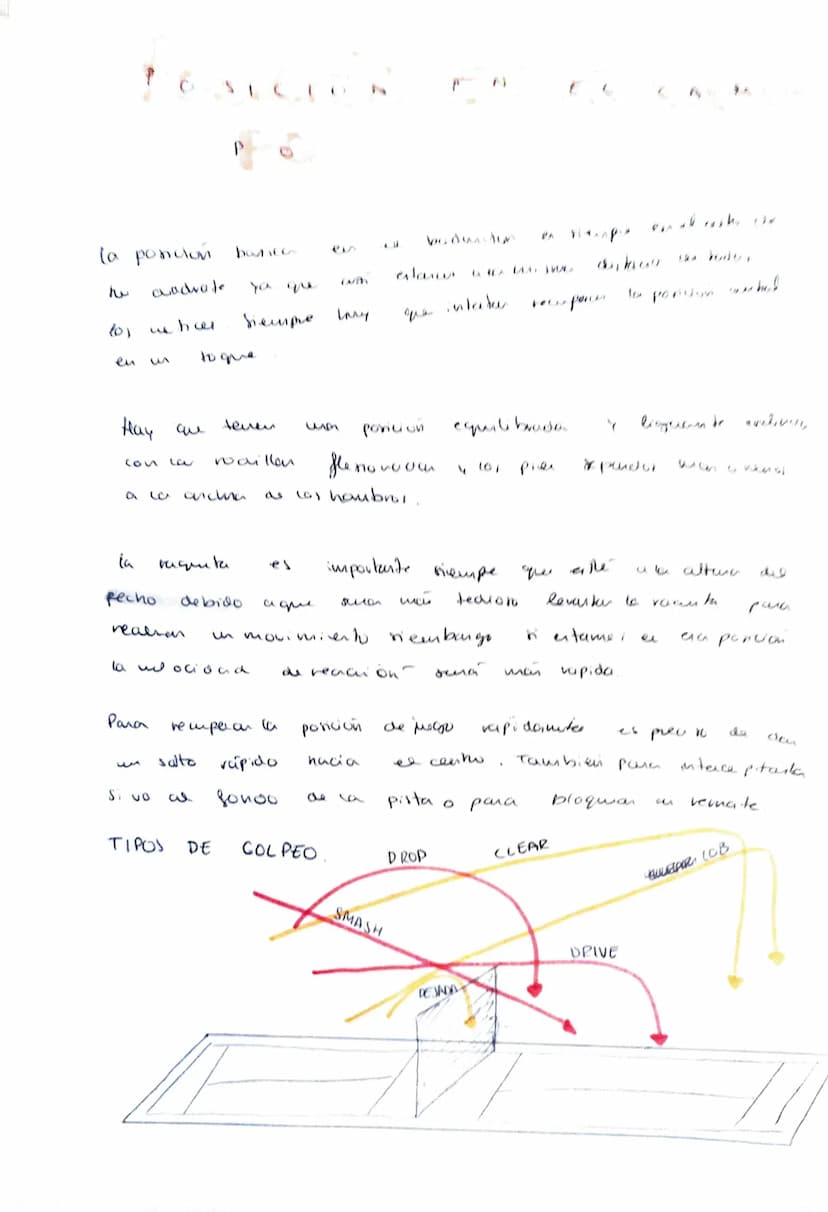 POSICIÓN EN EL CAM
PO
la posición basica en el badminton es siempre en el centro
cuadrado ya que así estamos a la misma
siempre hay que intentar recuperar la posicion central
en un toque
Hay que tener una posición equilibrada y
con la rodillas flexionadas y los pies
a la anchura de los hombros.
la raqueta es importante siempre que esté a la altura del
pecho debido a que sera más tedioso levantar la raqueta para
realizar un movimiento siembargo si estamos en esa posición
la velocidad de reacción será más rapida.
Para recuperar la posición de juego rapidamites es preciso de dar
un salto rápido hacia el centro. También para interceptarla
si va al fondo de la pista o para bloquear un remate
TIPOS DE GOLPEO.
DROP
CLEAR
LOB
SMASH
DRIVE
DEJADA